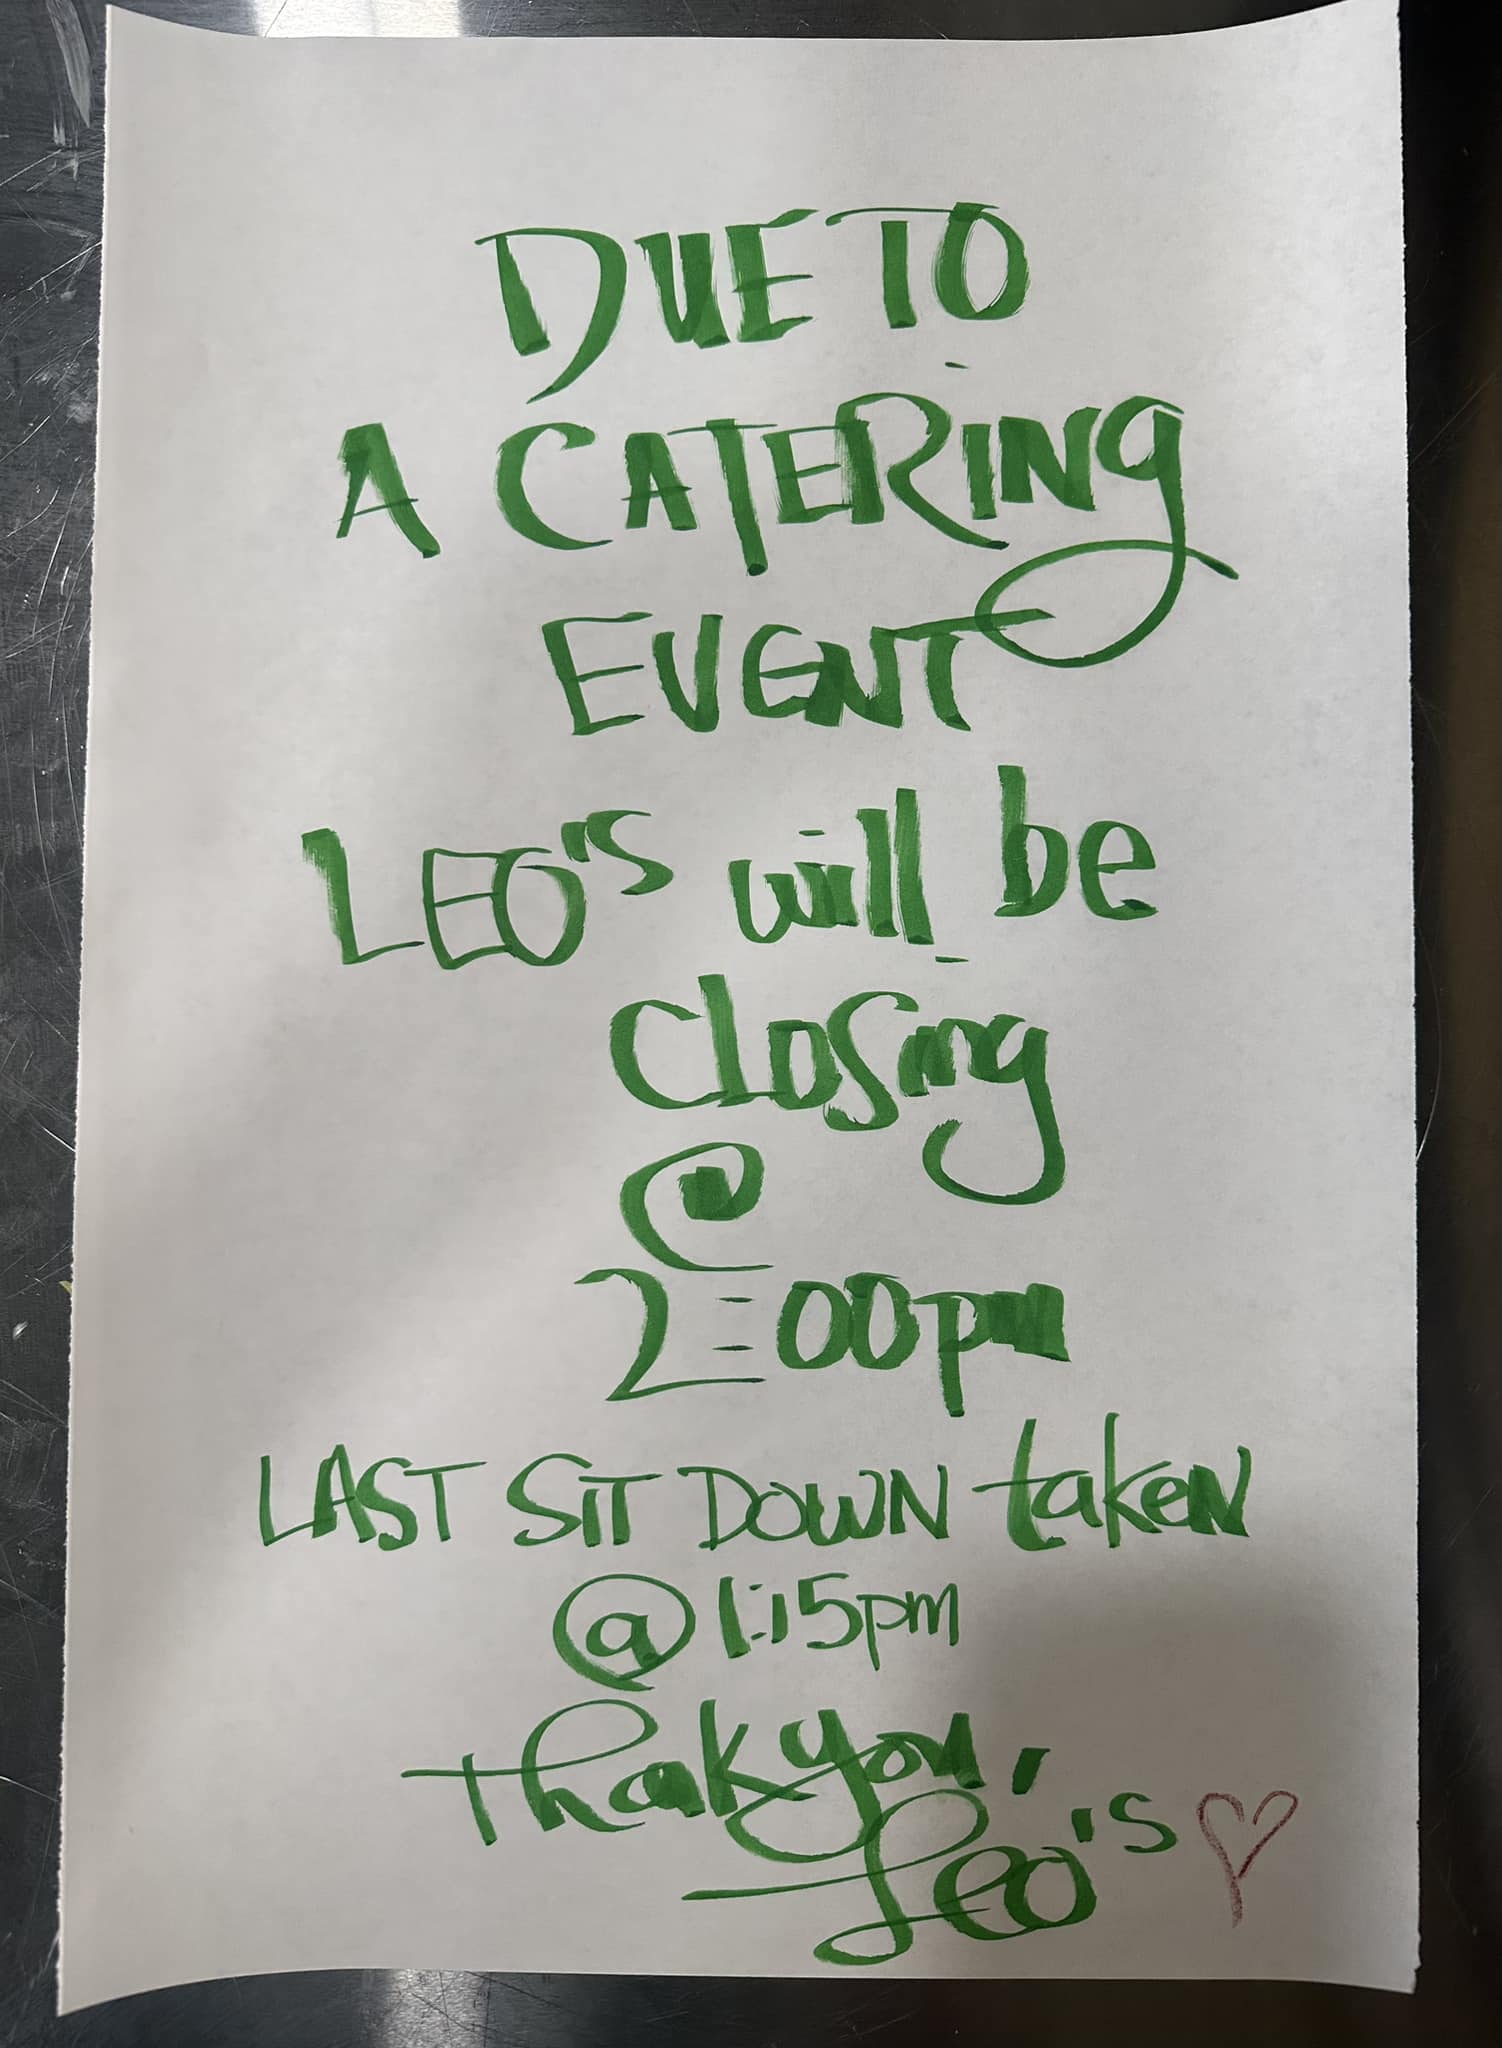 DUE TO
A CATERING
EVENT
LEO'S will be
closing
@
2:00pm
LAST SIT DOWN taken
@ 1:15pm
Thank you,
Leo's